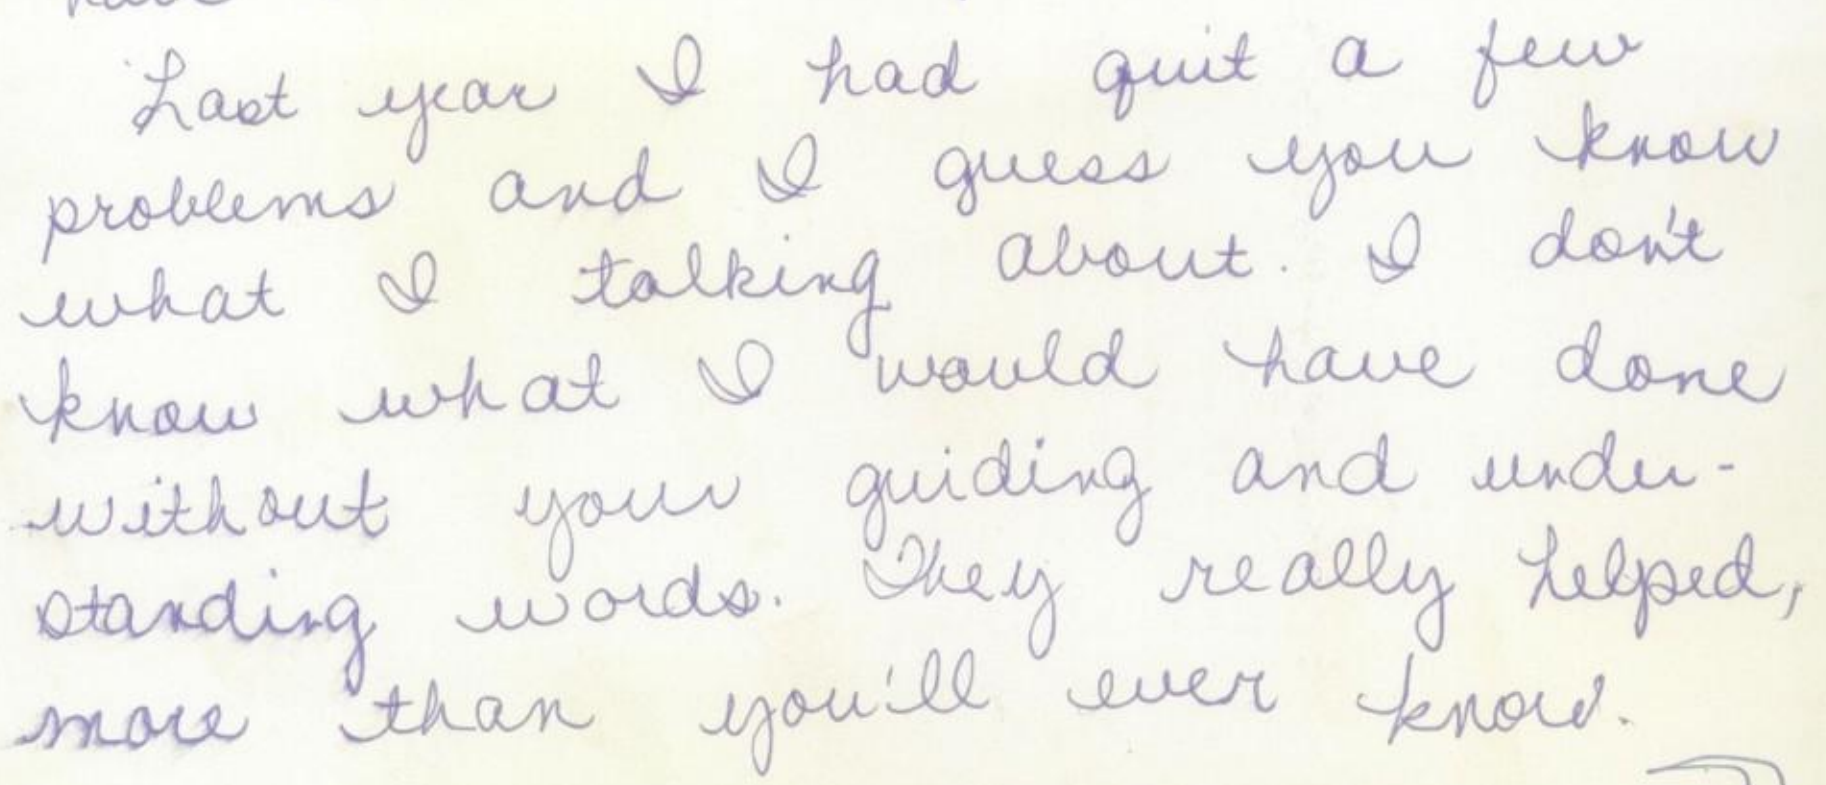 Last year I had quit a few
problems and I guess you know
what I talking about. I don't
know what I would have done
without your guiding and under-
standing words. They really helped,
more than you'll ever know.